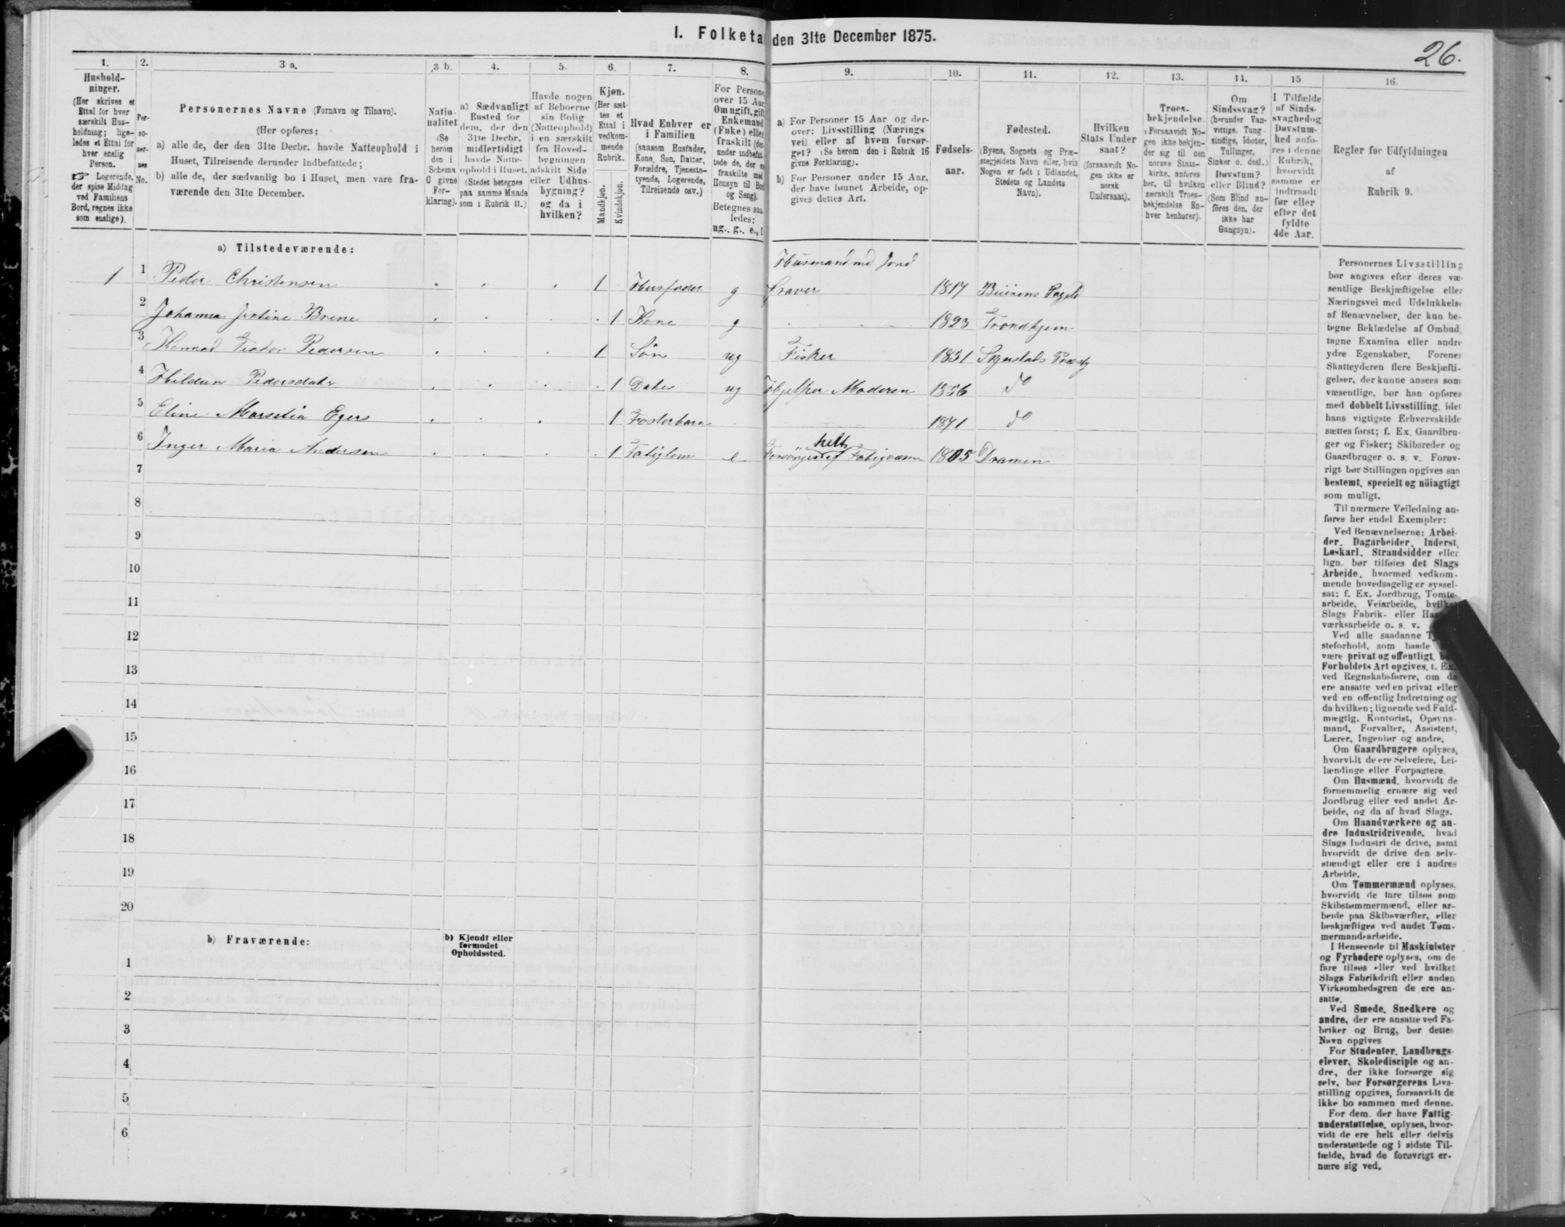 26.
I. Folketa den 31te December 1875.
1. 2. 3 a. 3 b. 4. 5. 6. 7. 8. 9. 10. 11. 12. 13. 14. 15 16.
Hushold-
ninger.
(Her skrives et
Ettal for hver
særskilt Hus-
holdning; lige-
ledes et Ettal for
hver enslig
Person.
☞ Logerende,
der spise Middag
ved Familiens
Bord, regnes ikke
som enslige).
Per-
so-
ner-
nes
No.
Personernes Navne (Fornavn og Tilnavn).
(Her opføres:
a) alle de, der den 31te Decbr. havde Natteophold i
Huset, Tilreisende derunder indbefattede;
b) alle de, der sædvanlig bo i Huset, men vare fra-
værende den 31te December.
Natio-
nalitet
(Se
herom
den i
Schema
O givne
For-
klaring).
a) Sædvanligt
Bosted for
dem, der den
31te Decbr.
midlertidigt
havde Natte-
ophold i Huset.
(Stedet betegnes
paa samme Maade
som i Rubrik 11.)
Havde nogen
af Beboerne
sin Bolig
(Natteophold)
i en særskilt
fra Hoved-
bygningen
adskilt Side
eller Udhus-
bygning?
og da i
hvilken?
Kjøn.
(Her sæt-
tes et
Ettal i
vedkom-
mende
Rubrik.
Mandkjøn.
Kvindekjøn.
Hvad Enhver er
i Familien
(saasom Husfader,
Kone, Søn, Datter,
Forældre, Tjeneste-
tyende, Logerende,
Tilreisende osv.)
For Persone
over 15 Aar
Om ugift, gift
Enkemand
(Enke) eller
fraskilt (der
under indbefat-
tede de, der e
fraskilte med
Hensyn til Bo
og Seng).
Betegnes saa
ledes:
ug., g., e., f
a) For Personer 15 Aar og der-
over: Livsstilling (Nærings
vei) eller af hvem forsør-
get? (Se herom den i Rubrik 16
givne Forklaring).
b) For Personer under 15 Aar,
der have lønnet Arbeide, op-
gives dettes Art.
Fødsels-
aar.
Fødested.
(Byens, Sognets og Præ-
stegjeldets Navn eller, hvis
Nogen er født i Udlandet,
Stedets og Landets
Navn).
Hvilken
Stats Under
saat?
(forsaavidt No-
gen ikke er
norsk
Undersaat).
Troes-
bekjendelse.
(Forsaavidt No-
gen ikke bekjen-
der sig til den
norske Stats-
kirke, anføres
her, til hvilken
særskilt Troes-
bekjendelse En-
hver henhører).
Om
Sindssvag?
(herunder Van-
vittige, Tung-
sindige, Idioter,
Tullinger,
Sinker o. desl.)
Døvstum?
eller Blind?
(Som Blind an-
føres den, der
ikke har
Gangsyn).
I Tilfælde
af Sinds-
svaghed og
Døvstum-
hed anfø-
res i denne
Rubrik,
hvorvidt
samme er
indtraadt
før eller
efter det
fyldte
4de Aar.
Regler for Udfyldningen
af
Rubrik 9.
a) Tilstedeværende:
Husmand med Jord
1 1 Peder Christensen 1 Husfader g Graver 1817
2 Johanna Brene 1 Kone g 1823 Trondhjem
3 Pedersen 1 Søn ug Fisker
4 Pedersdatr 1 Dater ug Hjelper Moderen 1856 do
5 Eline 1 Fosterbarn 1871 do
helt
6 Inger Maria Andersen 1 e af 1805 Dramen
7
8
9
10
11
12
13
14
15
16
17
18
19
20
b) Fraværende:
b) Kjendt eller
formodet
Opholdssted.
1
2
3
4
5
6
Personernes Livsstilling
bør angives efter deres væ-
sentlige Beskjæftigelse eller
Næringsvei med Udelukkelse
af Benævnelser, der kun be-
tegne Beklædelse af Ombud,
tagne Examina eller andre
ydre Egenskaber. Forener
Skatteyderen flere Beskjæfti-
gelser, der kunne ansees som
væsentlige, bør han opføres
med dobbelt Livsstilling, idet
hans vigtigste Erhvervskilde
sættes først; f. Ex. Gaardbru-
ger og Fisker; Skibsreder og
Gaardbruger o. s. v. Forøv-
rigt bør Stillingen opgives saa
bestemt, specielt og nöiagtigt
som muligt.
Til nærmere Veiledning an-
føres her endel Exempler:
Ved Benævnelserne: Arbei-
der, Dagarbeider, Inderst,
Løskarl, Strandsidder eller
lign. bør tilføies det Slags
Arbeide, hvormed vedkom-
mende hovedsagelig er syssel-
sat; f. Ex. Jordbrug, Tomte-
arbeide, Veiarbeide, hvilket
Slags Fabrik- eller
værksarbeide o. s. v.
Ved alle saadanne
steforhold, som baade
være privat og offentligt,
Forholdets Art opgives, t. Ex.
ved Regnskabsførere, om de
ere ansatte ved en privat eller
ved en offentlig Indretning og
da hvilken; lignende ved Fuld-
mægtig, Kontorist, Opsyns-
mand, Forvalter, Assistent,
Lærer, Ingeniør og andre.
Om Gaardbrugere oplyses,
hvorvidt de ere Selveiere, Lei-
lændinge eller Forpagtere.
Om Husmænd, hvorvidt de
fornemmelig ernære sig ved
Jordbrug eller ved andet Ar-
beide, og da af hvad Slags.
Om Haandværkere og an-
dre Industridrivende, hvad
Slags Industri de drive, samt
hvorvidt de drive den selv-
stændigt eller ere i andres
Arbeide.
Om Tømmermænd oplyses,
hvorvidt de fare tilsøs som
Skibstømmermænd, eller ar-
beide paa Skibsværfter, eller
beskjæftiges ved andet Tøm-
mermandsarbeide.
I Henseende til Maskinister
og Fyrbødere oplyses, om de
fare tilsøs eller ved hvilket
Slags Fabrikdrift eller anden
Virksomhedsgren de ere an-
satte.
Ved Smede, Snedkere og
andre, der ere ansatte ved Fa-
briker og Brug, bør dettes
Navn opgives
For Studenter, Landbrugs-
elever, Skoledisciple og an-
dre, der ikke forsørge sig
selv, bør Forsørgerens Livs-
stilling opgives, forsaavidt de
ikke bo sammen med denne.
For dem, der have Fattig-
understøttelse, oplyses, hvor-
vidt de ere helt eller delvis
understøttede og i sidste Til-
fælde, hvad de forøvrigt er-
nære sig ved.